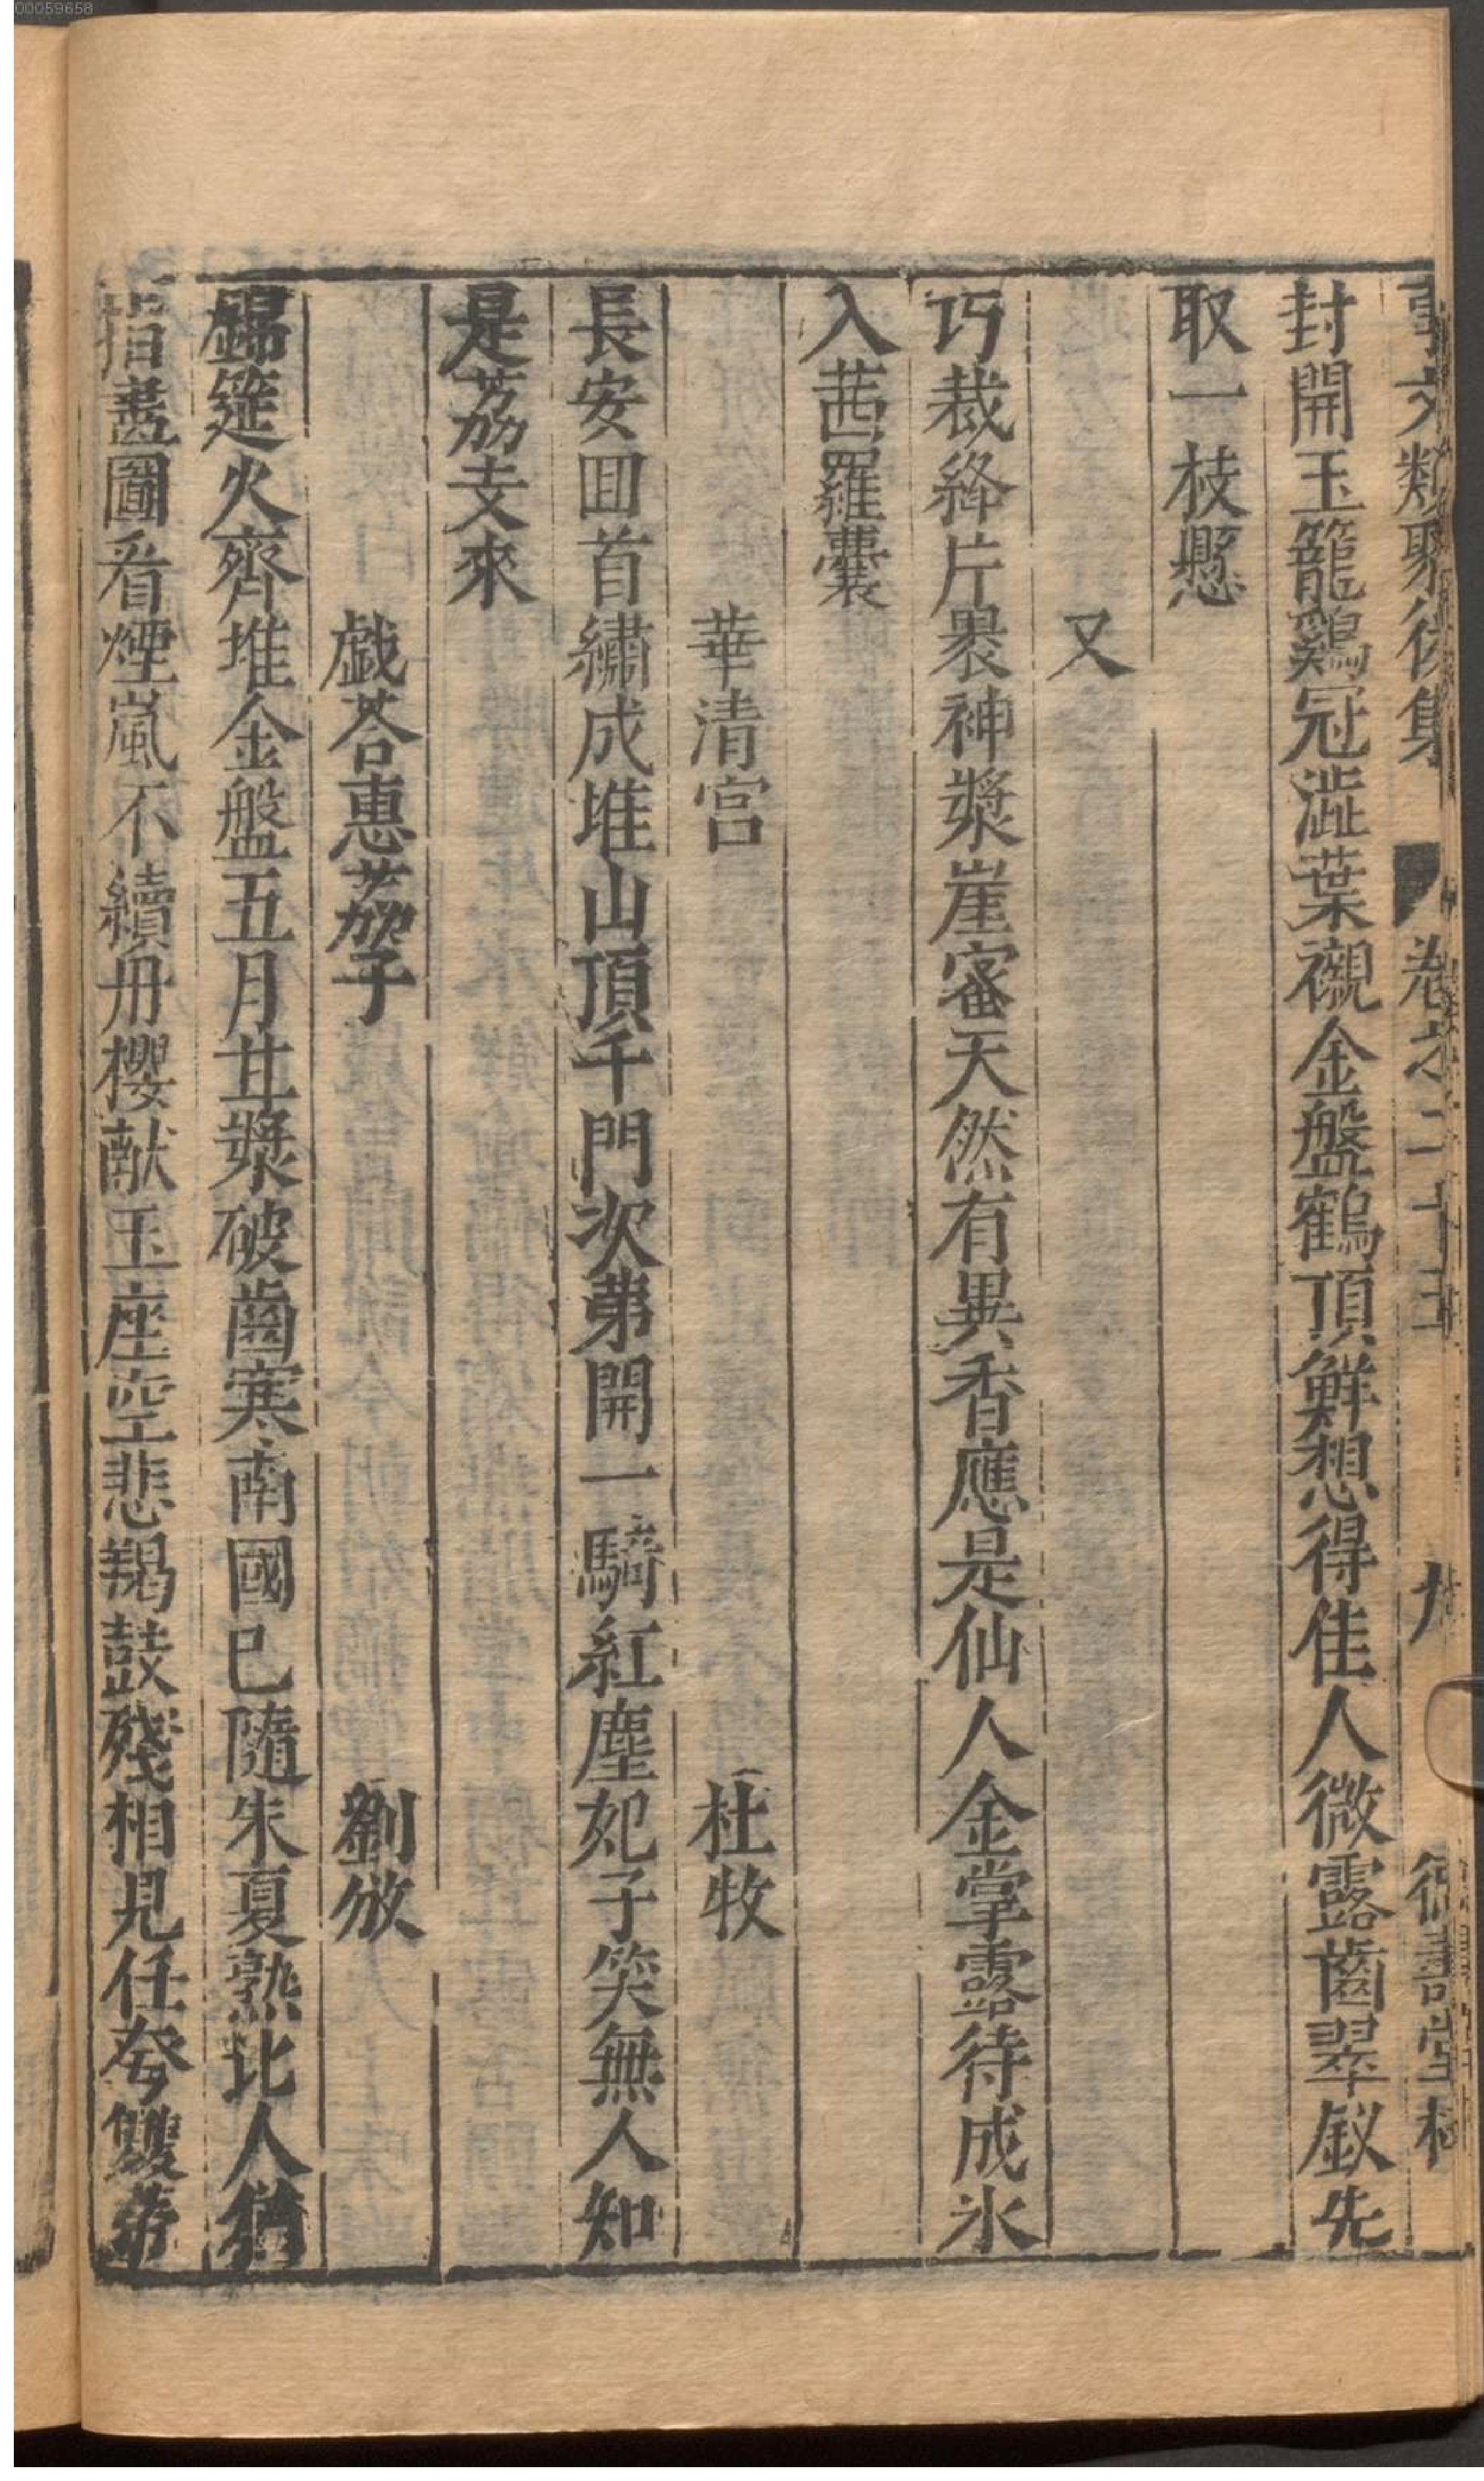 00059658
事文類聚後集 卷之二十五 九 德壽堂梓
封開玉籠鷄冠澁葉襯金盤鶴頂鮮想得佳人微露齒翠釵先
取一枝懸
又
巧裁絳片裹神漿崖蜜天然有異香應是仙人金掌露待成氷
入茜羅囊
華清宮 杜牧
長安囬首繡成堆山頂千門次第開一騎紅塵妃子笑無人知
是茘支來
戯荅惠茘子 劉攽
錦筵火齊堆金盤五月甘漿破齒寒南國已隨朱夏熟北人猶
指畫圖看煙嵐不續丹櫻献玉座空悲羯鼓殘相見任夸雙蒂